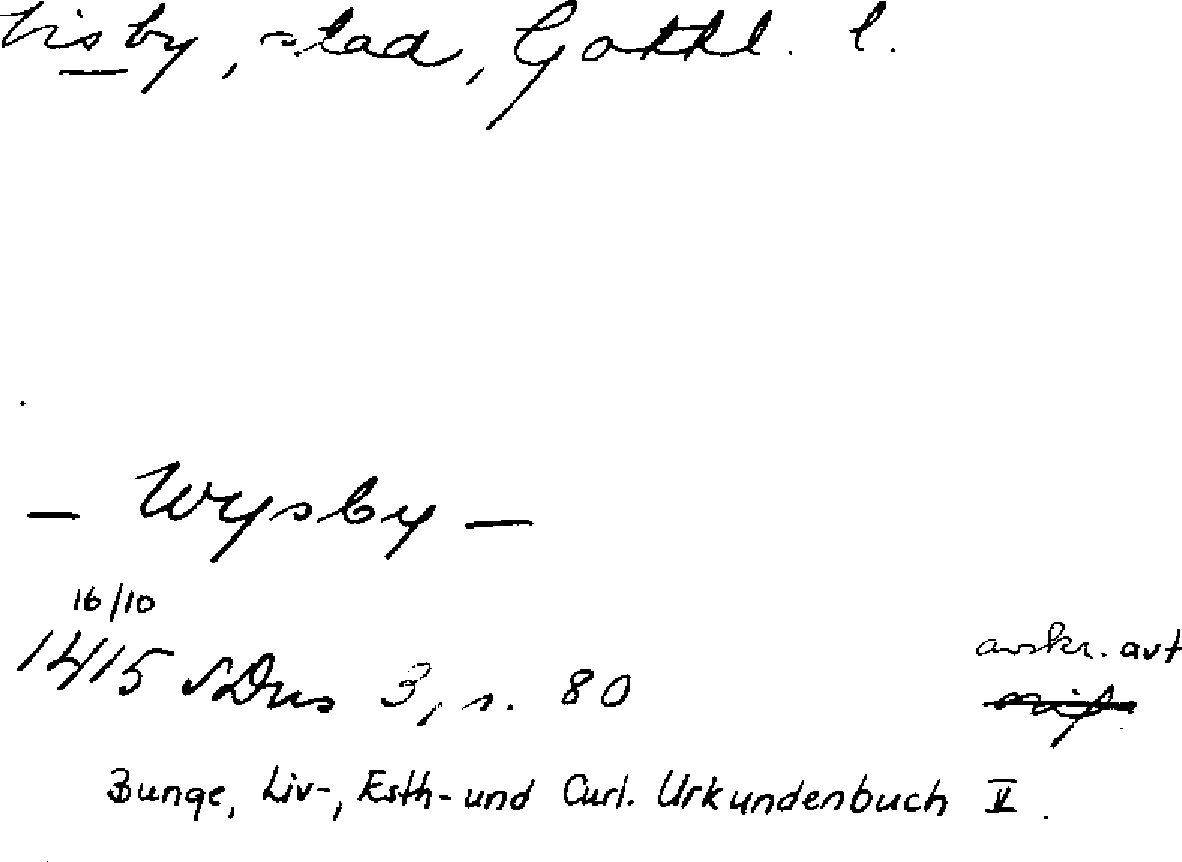 Visby, stad, Gottl. l.
– Wysby –
16/10
1415 SDns 3, s. 80
avskr. avt
Bunge, Liv-, Esth- und Curl. Urkundenbuch V.